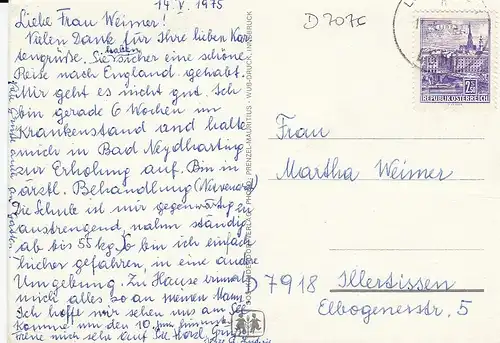 14.V.1975
Liebe Frau Weimer!
Vielen Dank für Ihre lieben Kar-
tengrüße. Sie haben sicher eine schöne
Reise nach England gehabt.
Mir geht es nicht gut. Ich
bin gerade 6 Wochen im
Krankenstand und halte
mich in Bad Neydharting
zur Erholung auf. Bin in
ärztl. Behandlung
Die Schule ist mir gegenwärtig zu
anstrengend, nahm ständig
ab bis 55 kg. So bin ich einfach
hierher gefahren, in eine andere
Umgebung. Zu Hause erinnert
mich alles so an meinen Mann.
Ich hoffe wir sehen uns am
Komme um den 10.
freue mich sehr auf Sie. Herzl. Grüße
D 7075
2.50
REPUBLIK ÖSTERREICH
Frau
Martha Weimer
D 7918 Illertissen
Elbogenerstr. 5